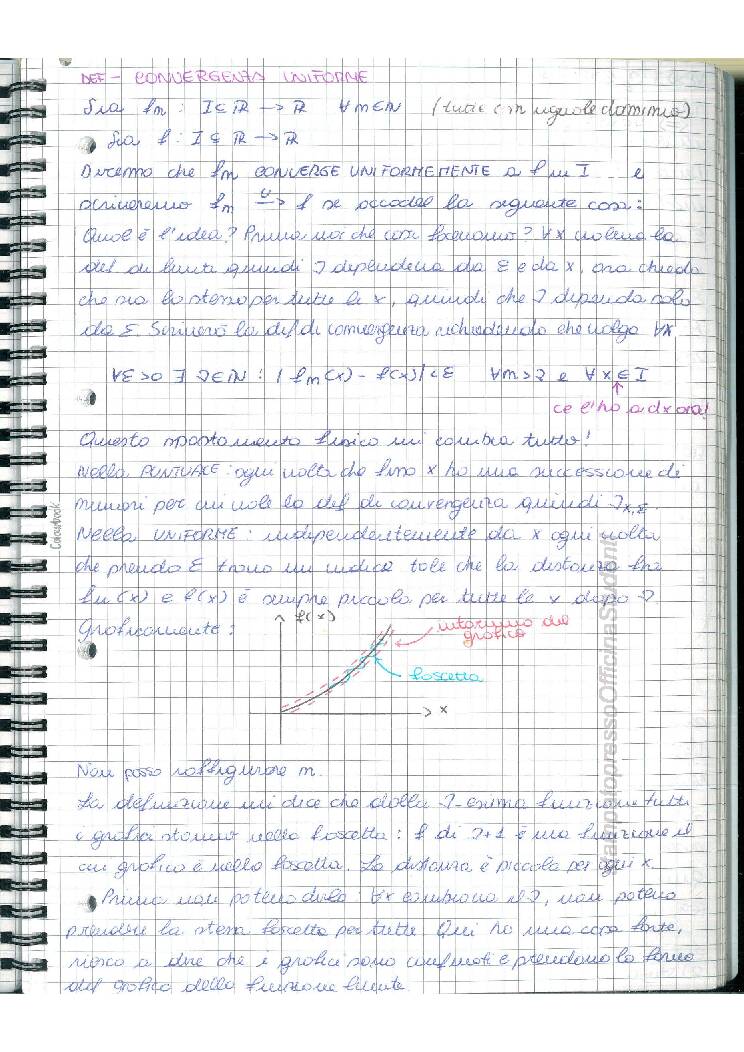 DEF - CONVERGENZA UNIFORME
Sia fn : I ⊆ ℝ → ℝ ∀n∈ℕ (tutte con uguale dominio)
Sia f : I ⊆ ℝ → ℝ
Diremo che fn CONVERGE UNIFORMEMENTE a f in I e
scriveremo fn →ᵁ f se accade la seguente cosa:
Qual è l'idea? Prima noi che cosa facevamo? ∀x valeva la
def di limiti quindi ν dipendeva da ε e da x, ora chiedo
che sia lo stesso per tutte le x, quindi che ν dipenda solo
da ε. Scriverò la def di convergenza richiedendo che valga ∀x
∀ε>0 ∃ ν∈ℕ : |fn(x) - f(x)|<ε ∀n>ν e ∀x∈I
ce l'ho a dx ora!
Questo spostamento fisico mi cambia tutto!
Nella PUNTUALE: ogni volta che fisso x ho una successione di
numeri per cui vale la def di convergenza quindi νx,ε.
Nella UNIFORME: indipendentemente da x ogni volta
che prendo ε trovo un indice tale che la distanza tra
fn(x) e f(x) è sempre piccola per tutte le x dopo ν
Graficamente:
f(x)
intorno del
grafico
fascetta
x
Non posso raffigurare n.
La definizione mi dice che dalla ν-esima funzione tutti
i grafici stanno nella fascetta: f di ν+1 è una funzione il
cui grafico è nella fascetta. La distanza è piccola per ogni x.
Prima non potevo dirlo: ∀x cambiava il ν, non potevo
prendere la stessa fascetta per tutte. Qui ho una cosa forte,
riesco a dire che i grafici sono confinati e prendono la forma
del grafico della funzione limite.
Colourbook
StampatopressoOfficinaStudenti